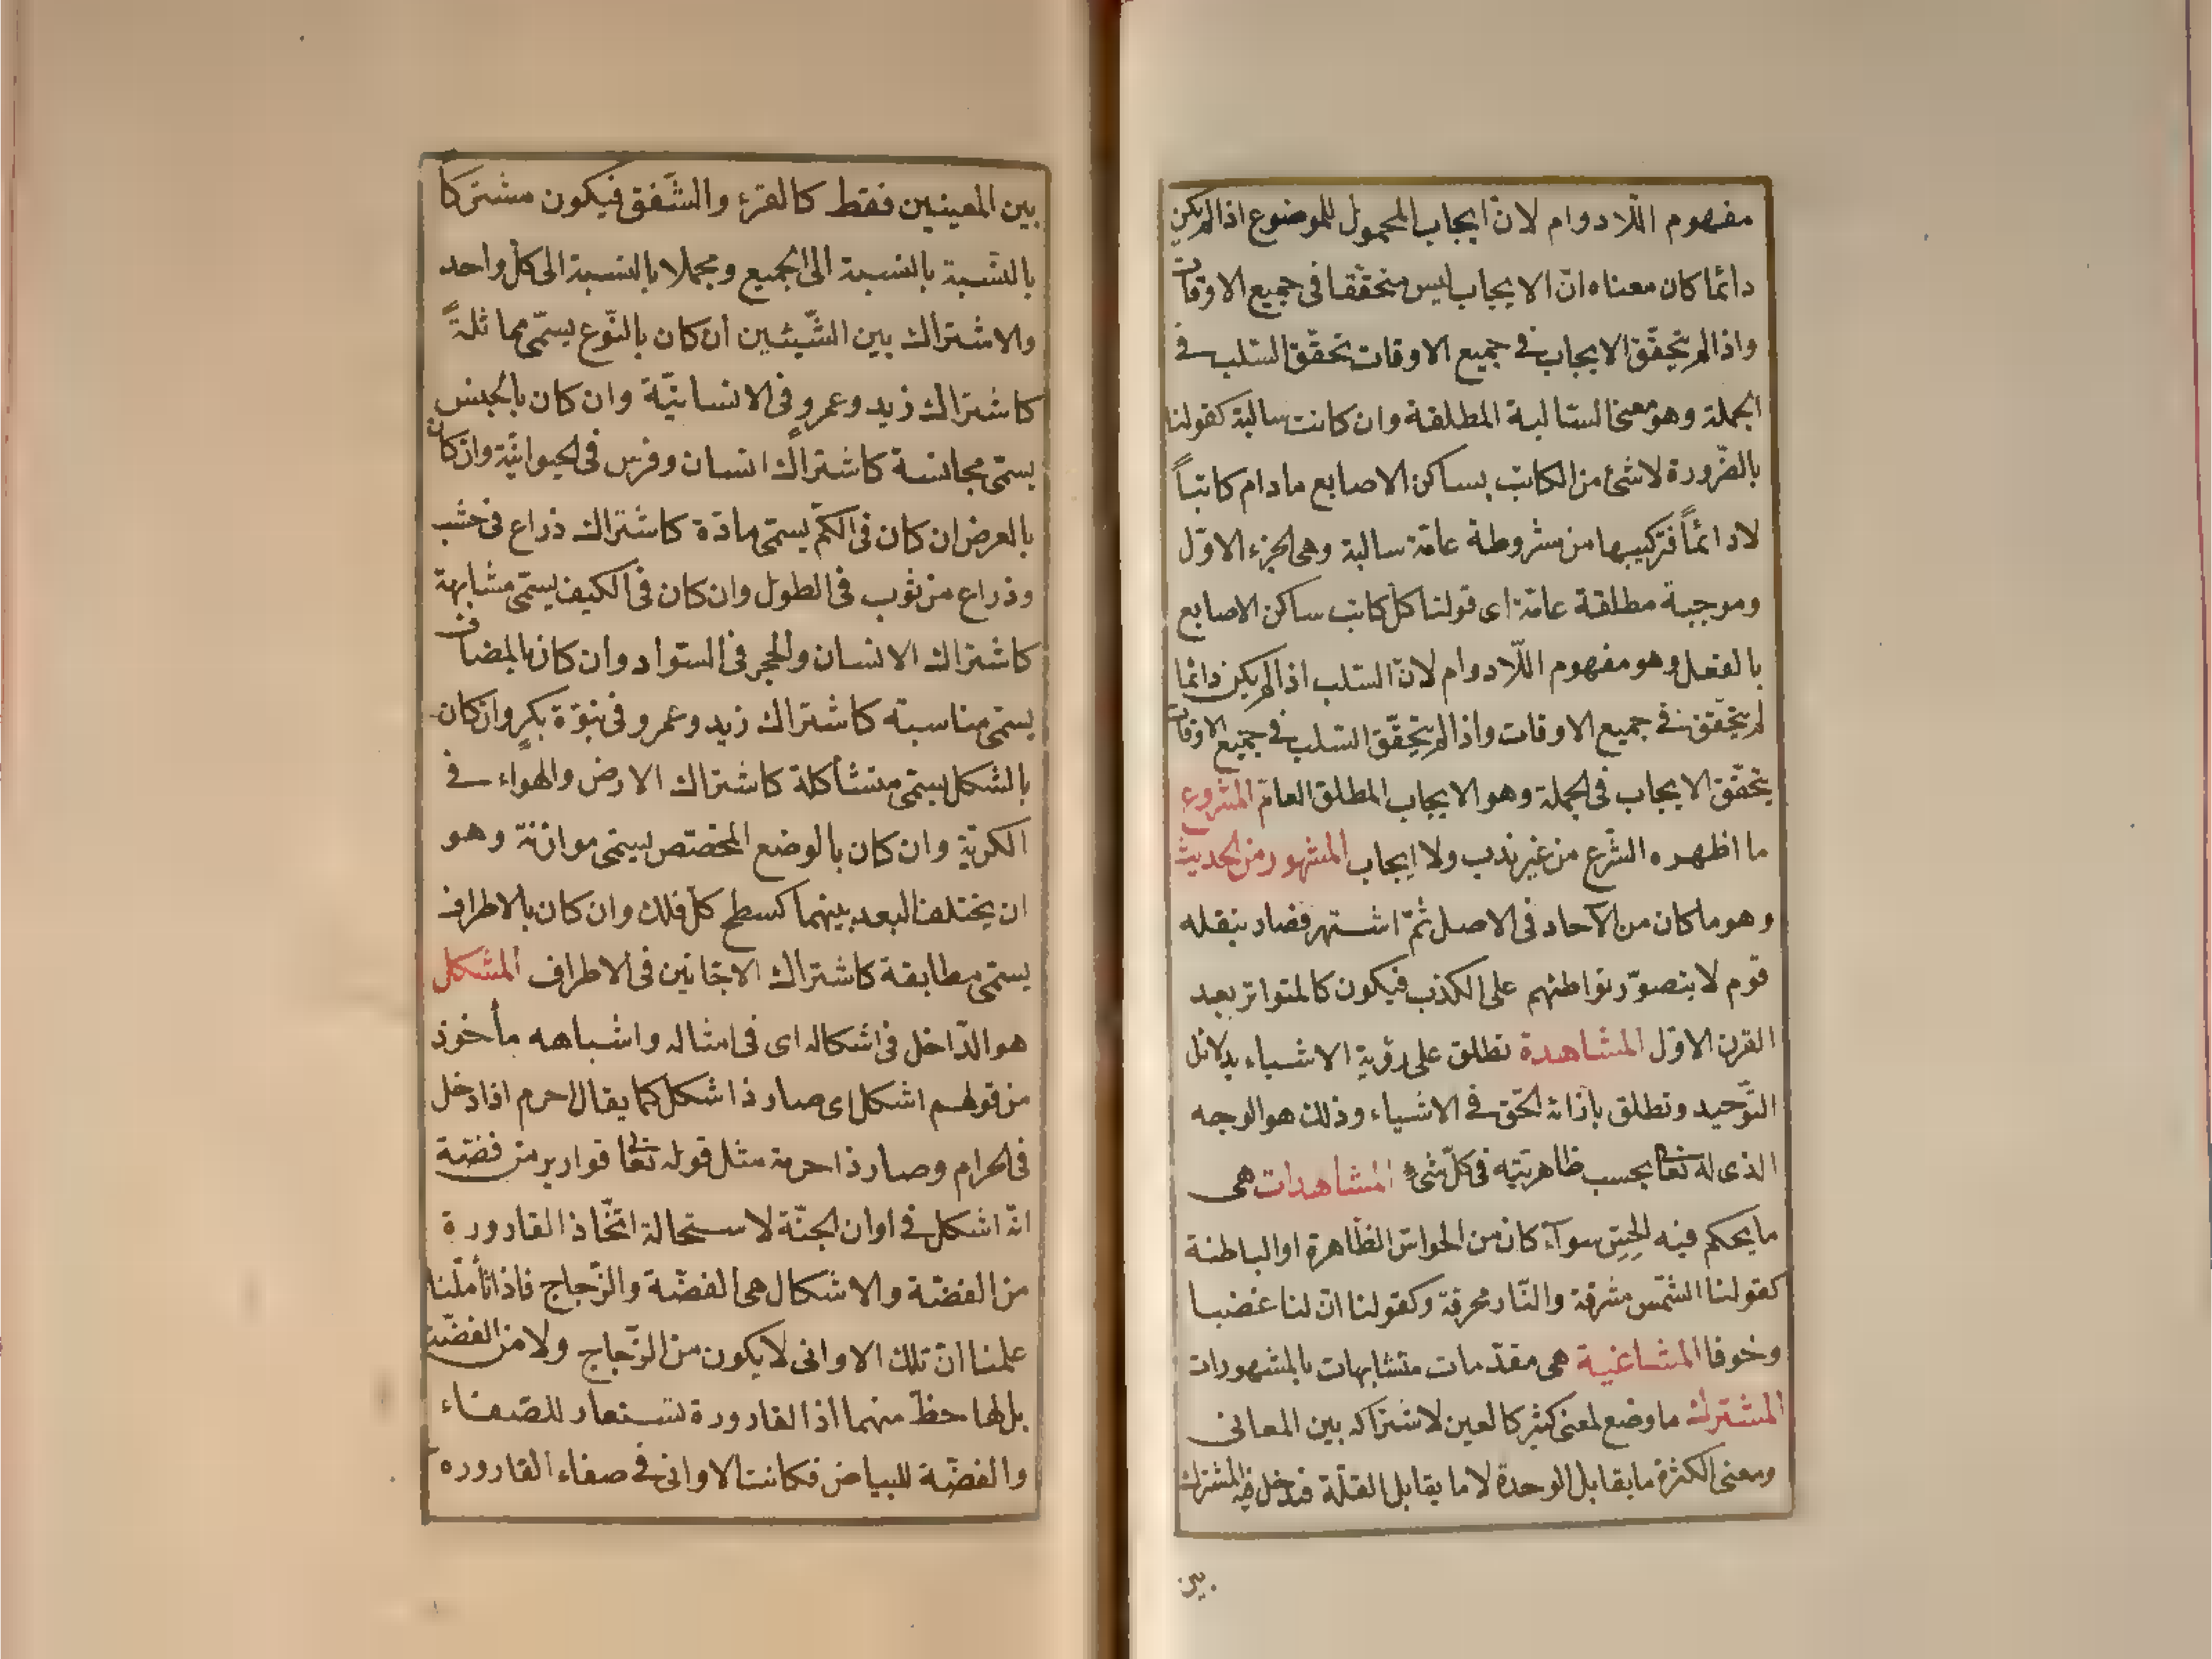 مفهوم اللّادوام لانّ ايجاب المحمول للموضوع اذا لم يكن
دائما كان معناه انّ الايجاب ليس متحقّقا فى جميع الاوقات
واذا لم يتحقّق الايجاب فى جميع الاوقات تحقّق السّلب فى
الجملة وهو معنى السالبة المطلقة وان كانت سالبة كقولنا
بالضّرورة لا شئ من الكاتب بساكن الاصابع ما دام كاتباً
لا دائماً فتركيبها من مشروطة عامّة سالبة وهى الجزء الاوّل
وموجبة مطلقة عامّة اى قولنا كلّ كاتب ساكن الاصابع
بالفعل وهو مفهوم اللّادوام لانّ السّلب اذا لم يكن دائما
لم يتحقّق فى جميع الاوقات واذا لم يتحقّق السّلب فى جميع الاوقات
يتحقّق الايجاب فى الجملة وهو الايجاب المطلق العامّ المشروع
ما اظهره الشّرع من غير ندب ولا ايجاب المشهور من الحديث
وهو ما كان من الآحاد فى الاصل ثمّ اشتهر فصار ينقله
قوم لا يتصوّر تواطئهم على الكذب فيكون كالمتواتر بعد
القرن الاوّل المشاهدة تطلق على رؤية الاشياء بدلائل
التّوحيد وتطلق بازائه الحّق فى الاشياء وذلك هو الوجه
الذى له تعالى بحسب ظاهريّته فى كلّ شىءٍ المشاهدات هى
ما يحكم فيه الحِسّ سوآء كان من الحواسّ الظّاهرة او الباطنة
كقولنا الشّمس مشرقة والنّار محرقة وكقولنا انّ لنا غضبا
وخوفا المشاغبة هى مقدّمات متشابهات بالمشهورات
المشترك ما وضع لمعنى كثير كالعين لاشتراكه بين المعانى
ومعنى الكثرة ما يقابل الوحدة لا ما يقابل القلّة فيدخل فيه المشترك
بين
بين المعنيين فقط كالقرء والشّفق فيكون مشتركاً
بالنّسبة بالنسبة الى الجميع ومجملا بالنسبة الى كلّ واحد
والاشتراك بين الشّيئين ان كان بالنّوع يسمّى مماثلةً
كاشتراك زيد وعمرو فى الانسانيّة وان كان بالجنس
يسمّى مجانسة كاشتراك انسان وفرس فى الحيوانيّة وان كان
بالعرض ان كان فى الكمّ يسمّى مادّة كاشتراك ذراع فى خشب
وذراع من ثوب فى الطول وان كان فى الكيف يسمّى مشابهة
كاشتراك الانسان والحجر فى السّواد وان كان بالمضاف
يسمّى مناسبة كاشتراك زيد وعمرو فى بنوّة بكرٍ وان كان
بالشكل يسمّى متشاكلة كاشتراك الارض والهواء فى
الكريّة وان كان بالوضع المخصّص يسمّى موازنة وهو
ان يختلف البعد بينهما كسطح كلّ فلك وان كان بالاطراف
يسمّى مطابقة كاشتراك الاجّانين فى الاطراف المشكل
هو الدّاخل فى اشكاله اى فى امثاله واشباهه مأخوذ
من قولهم اشكل اى صار ذا شكل كما يقال احرم اذا دخل
فى الحرام وصار ذا حرمة مثل قوله تعالى قوارير من فضّة
انّه اشكل فى اوان الجنّة لاستحالة اتّخاذ القارورة
من الفضّة والاشكال هى الفضّة والزّجاج فاذا تأمّلنا
علمنا انّ تلك الاوانى لا يكون من الزّجاج ولا من الفضّة
بل لها حظّ منهما اذ القارورة تستعار للصّفاء
والفضّة للبياض فكانت الاوانى فى صفاء القارورة